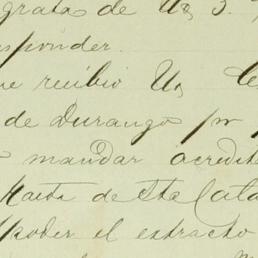 gratas de Ud 3.
sponder.
ue recibio Ud
de Durango por
mandar acredit
Haeda de Sta Cata
poder el extracto